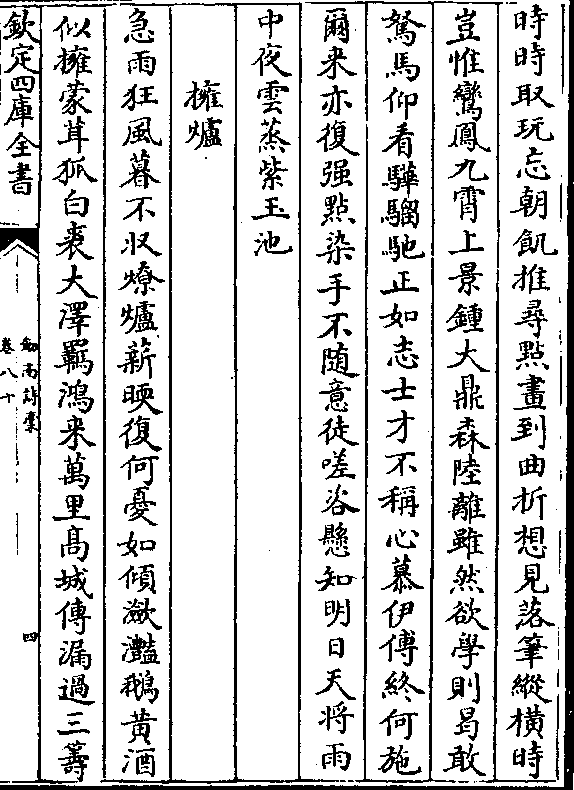 時時取玩忘朝飢推尋點畫到曲折想見落筆縱横時
豈惟鸞鳳九霄上景鍾大鼎森陸離雖然欲學則曷敢
駑馬仰看驊騮馳正如志士才不稱心慕伊傅終何施
爾来亦復强點染手不随意徒嗟咨懸知明日天将雨
中夜雲蒸紫玉池
擁爐
急雨狂風暮不収燎爐薪暎復何憂如傾瀲灔鵝黄酒
似擁蒙茸狐白裘大澤羈鴻来萬里髙城傳漏過三籌
欽定四庫全書
劔南詩稾
卷八十
四